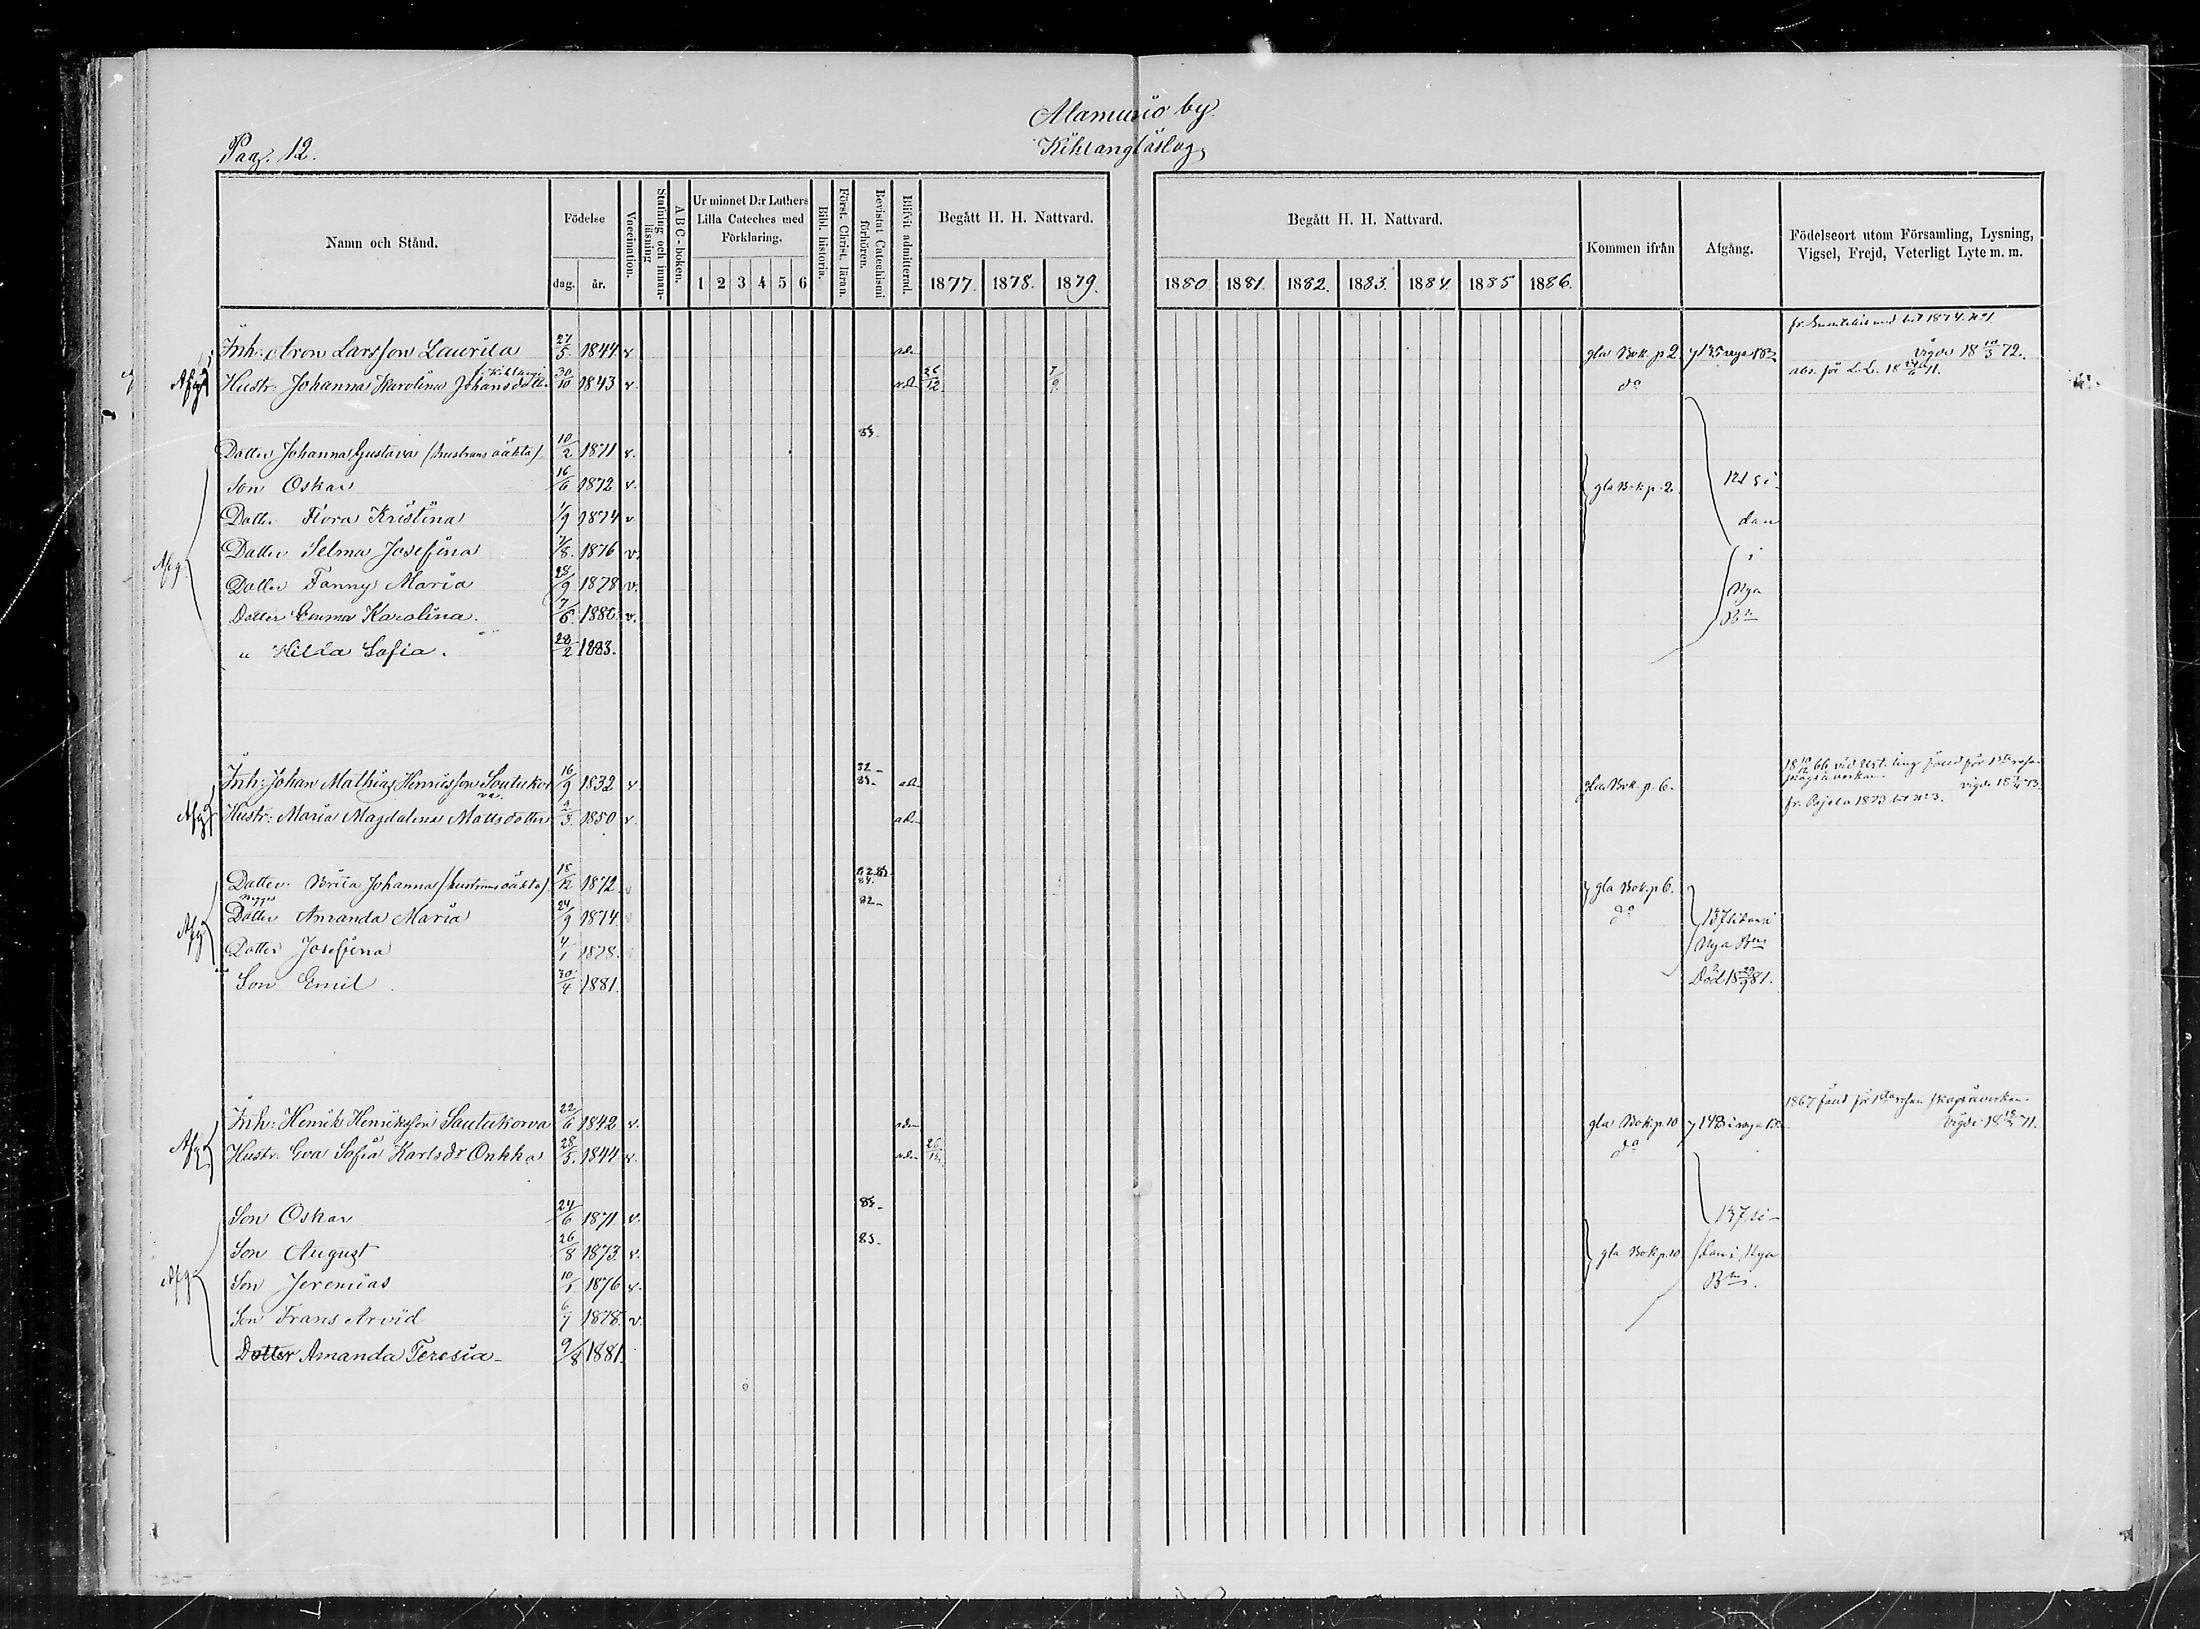 Pag. 12.
Alamuonio by.
Kihlanginslag
Namn och Stånd.
Födelse
dag. år.
Vaccination.
Stafning och innanläsning
A B C - boken.
Ur minnet D:r Luthers Lilla Cateches med Förklaring.
1 2 3 4 5 6
Bibl. historia.
Först. Christ. läran.
Bevistat Catechismi förhören.
Blifvit admitterad.
Begått H. H. Nattvard.
1877. 1878. 1879.
Begått H. H. Nattvard.
1880. 1881. 1882. 1883. 1884. 1885 1886.
Kommen ifrån
Afgång.
Födelseort utom Församling, Lysning, Vigsel, Frejd, Veterligt Lyte m. m.
Inh: Aron Larsson Laurila 27/5 1844. v. adm gla Bok. p 2 vigde 18 10/3 72.
Afg. Hustr: Johanna Karolina Johansdotter 30/10 1843 v. ad. 26/12 7/9 do
83.
Dotter Johanna Gustava (hustruns oäkta) 10/2 1871 v.
Son Oskar 16/6 1872 v. gla Bok p. 2 121 si-
Dotter Flora Kristina 1/9 1874 v dan
Afg. Dotter Selma Josefina 7/8 1876 v. i
Dotter Fanny Maria 28/9 1878 v. Nya
Dotter Emma Karolina. 7/6 1880. v. Bn
" Hilda Sofia. 28/2 1883.
Inh: Johan Mathias Henriksson Soutukorva 16/9 1832 v 82- 83- ad. gla Bok. p. 6. vigde 18 73.
Afg. Hustr: Maria Magdalena Matts dotter 2/3 1850 v. adm fr. Pajala 1873 bet No 3.
Dotter Brita Johanna (hustruns oäkta) 18/12 1872. 82.83 84. gla Bok. p 6.
Afg. Dotter Amanda Maria 24/9 1874 82- do 137 sidan i
Dotter Josefina 4/1 1878. Nya Bn
Son Emil 30/4 1881. Död 18 29/9 81.
Inh: Henrik Henriksson Sautukorva 22/6 1842 v. adm gla Bok. p. 10 vigde 18 18/3 71.
Afg. Hustr. Eva Sofia Karlsdr Onkka 28/5. 1844 v. adm 26/12 do
Son Oskar 24/6 1871 v. 83- 137 si-
Son August 26/8 1873 v. 83- gla Bok p. 10 dan i Nya
Afg. Son Jeremias 10/1 1876 v. Bn.
Son Frans Arvid 6/7 1878. v.
Dotter Amanda Teresia- 9/8 1881.